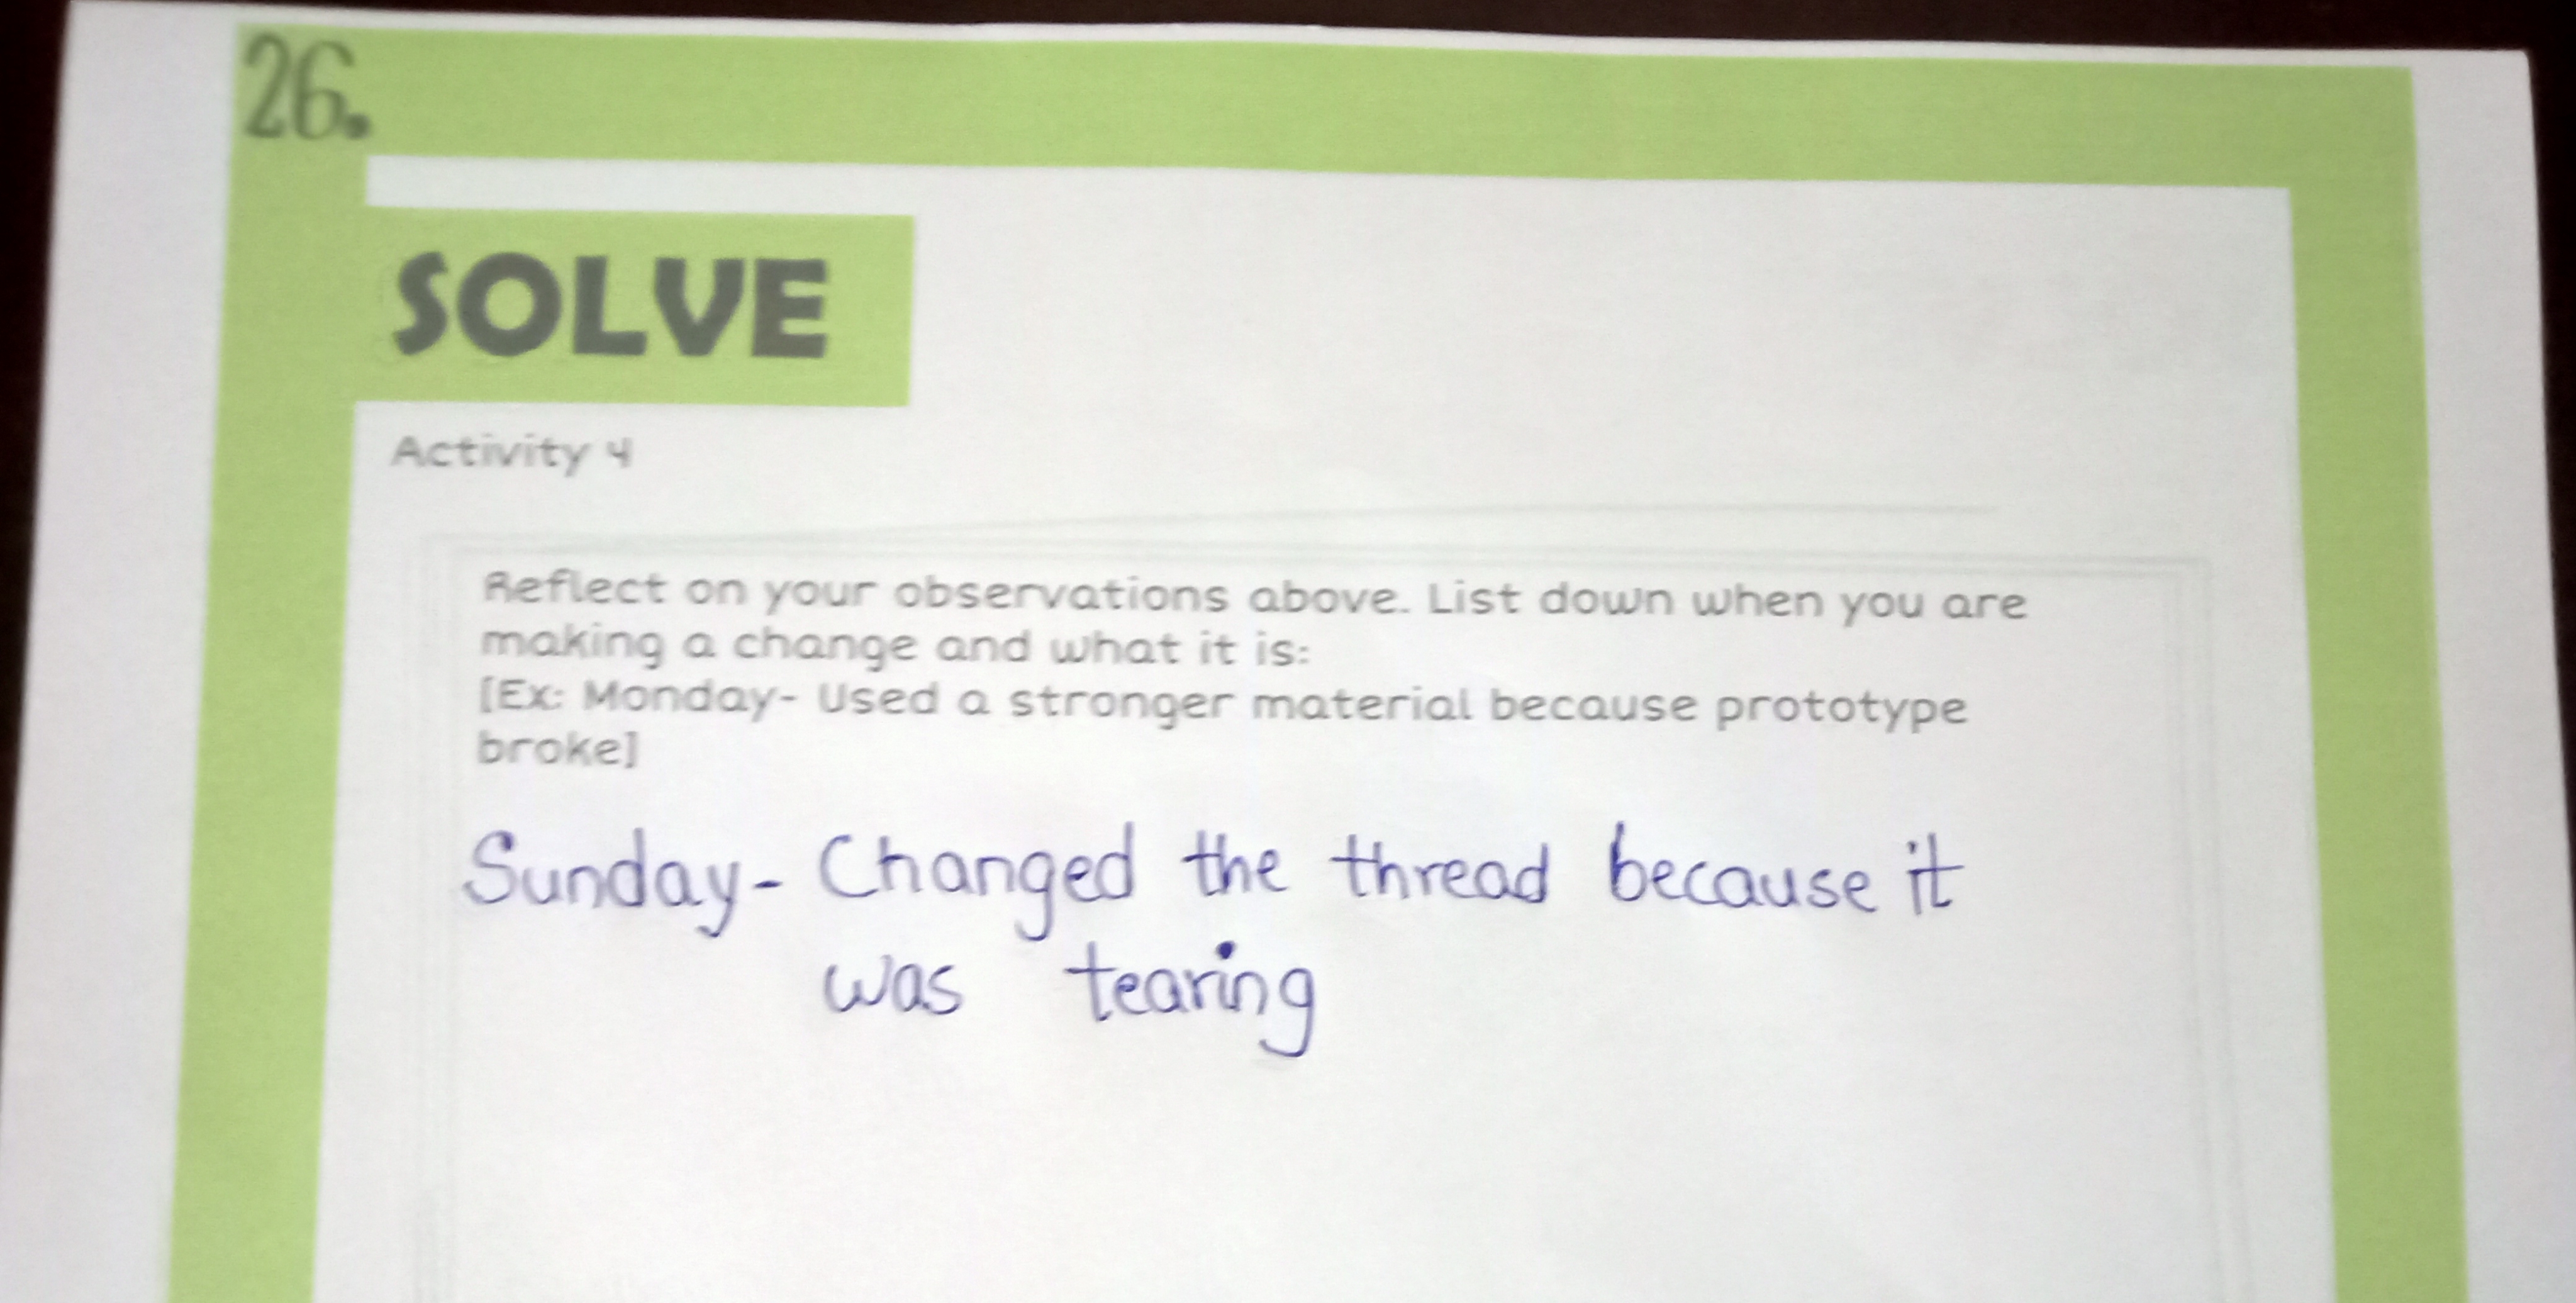 26.
SOLVE
Activity 4
Reflect on your observations above. List down when you are
making a change and what it is:
[Ex: Monday- Used a stronger material because prototype
broke]
Sunday- Changed the thread because it
was tearing